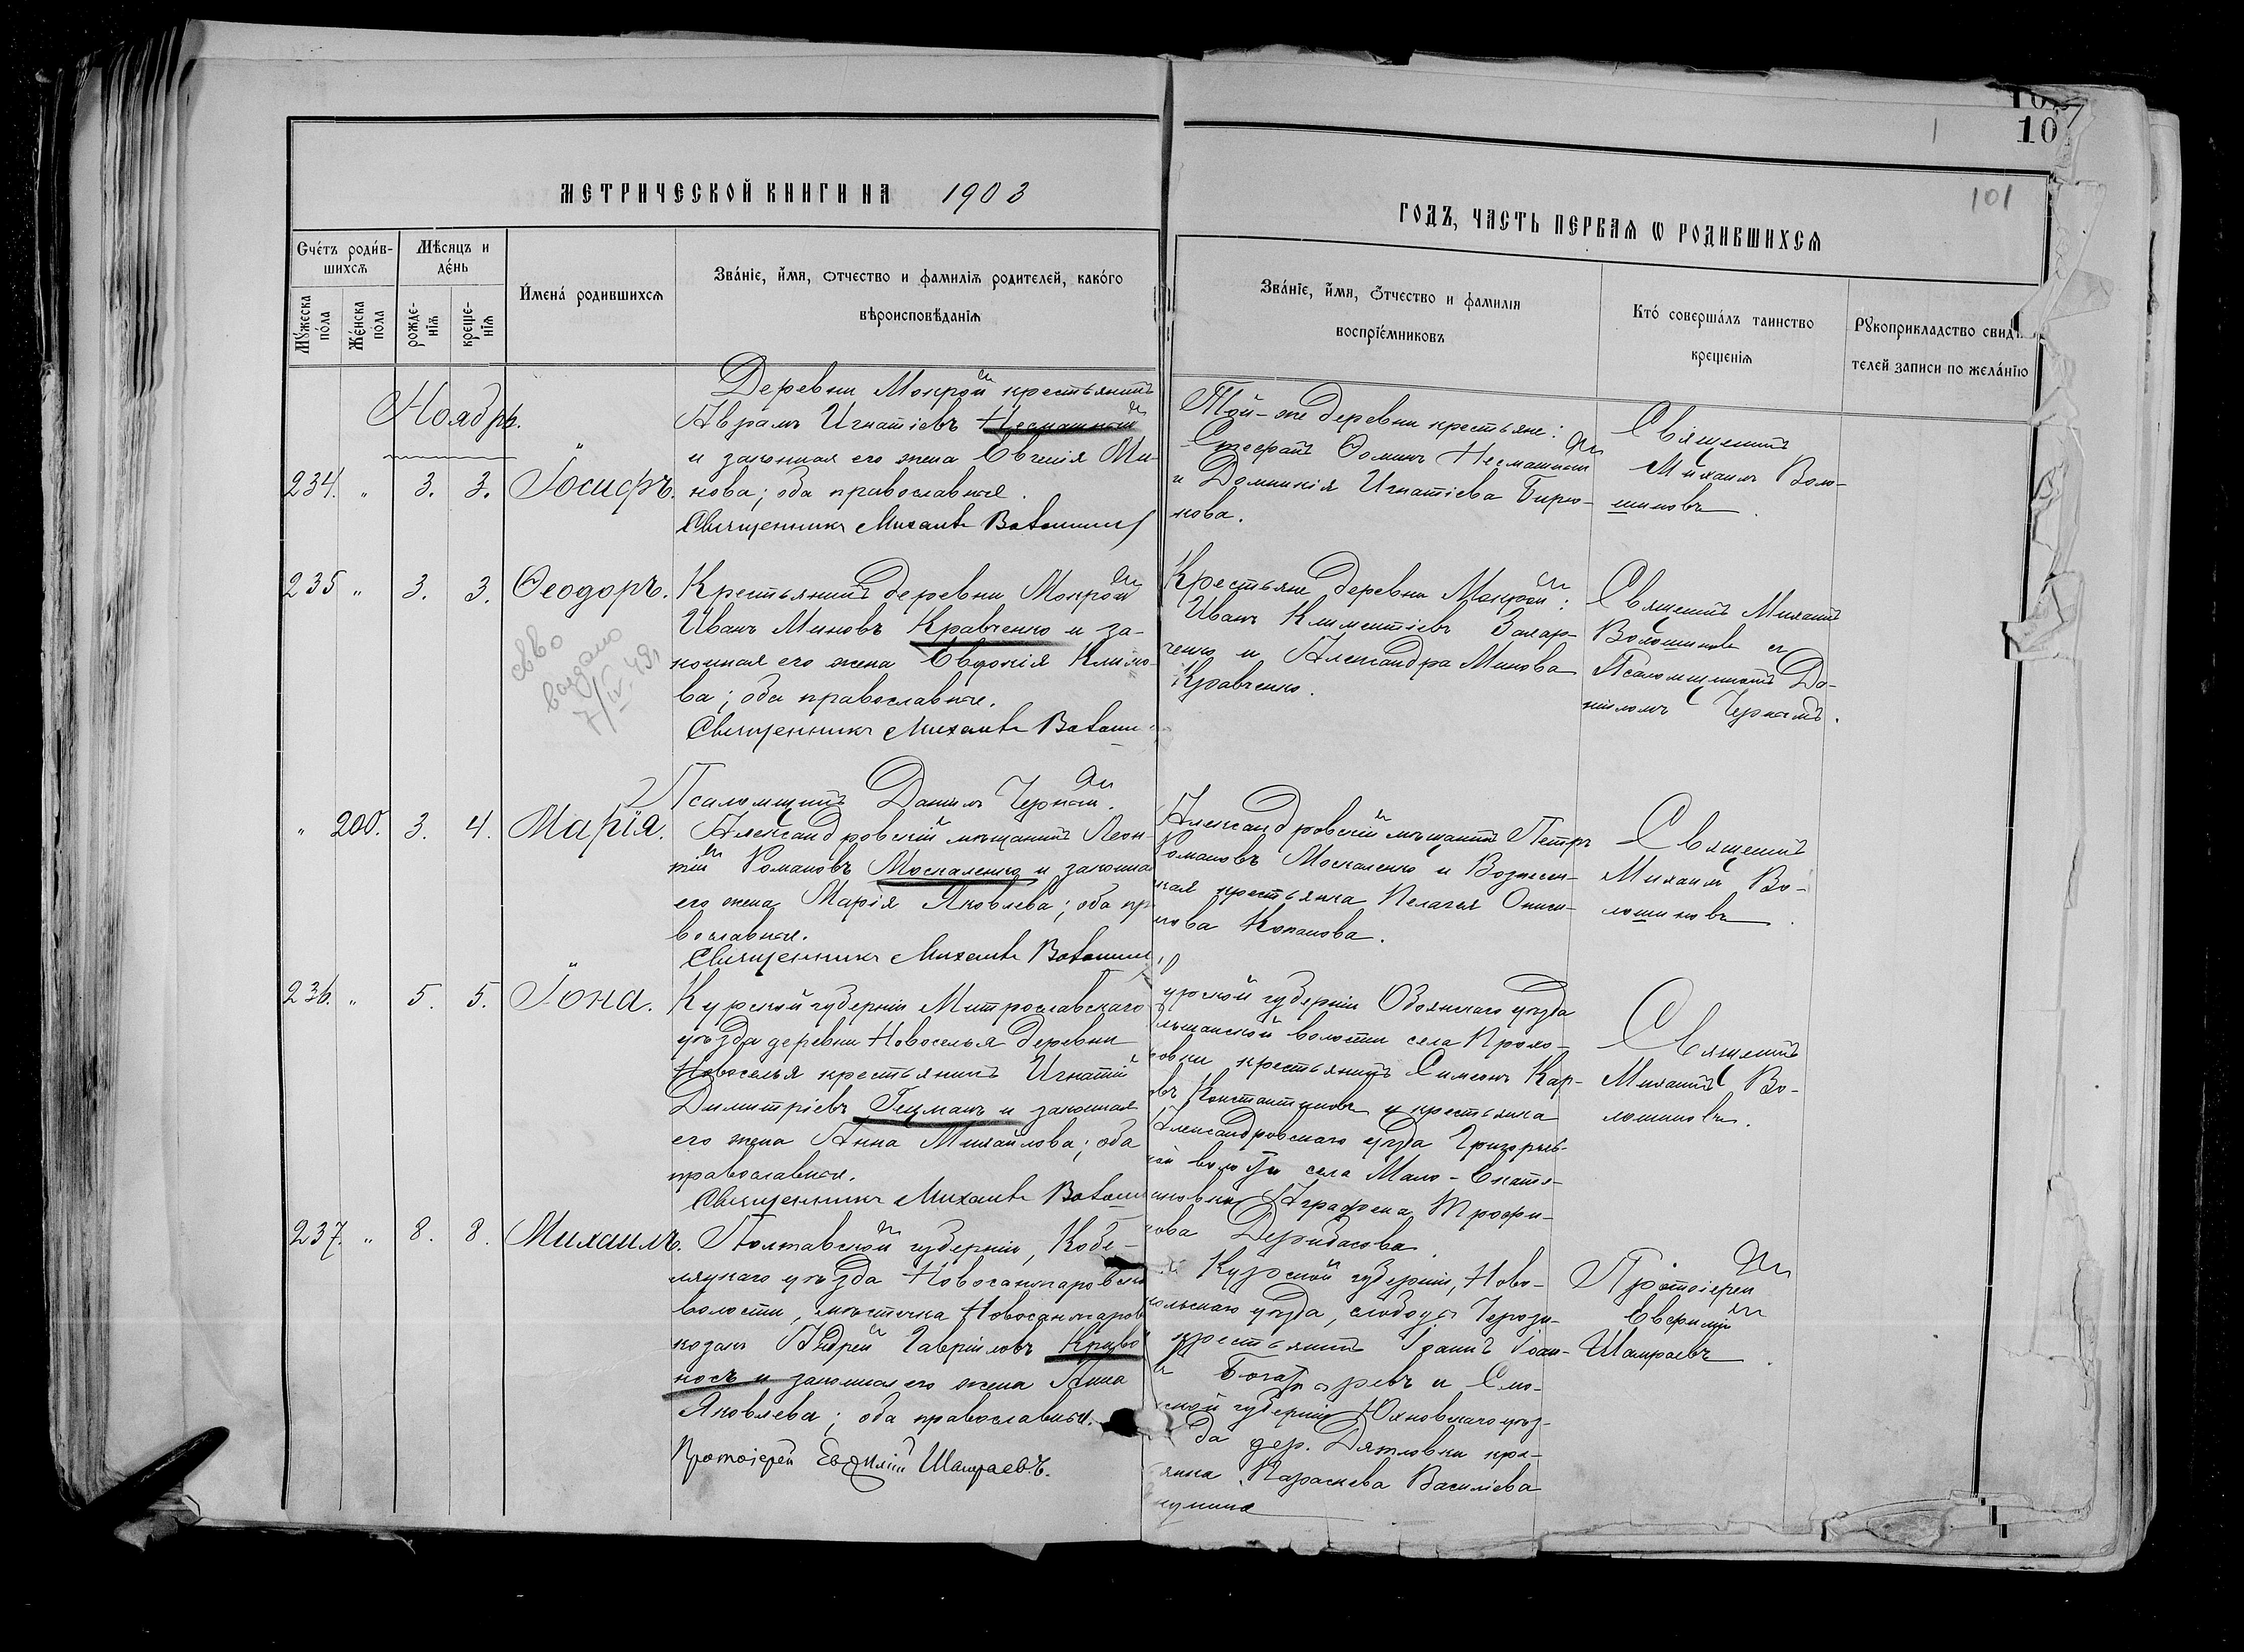 107
10
101
МЕТРИЧЕСКОЙ КНИГИ НА 1903
ГОДЪ, ЧАСТЬ ПЕРВАЯ Ѡ РОДИВШИХСЯ
Счетъ родив-
шихся
Мужеска
пола
Женска
пола
Мѣсяцъ и
день
рожде-
нія
креще-
нія
Имена родившихся
Званіе, имя, отчество и фамилія родителей, какого
вѣроисповѣданія
Званіе, имя, отчество и фамилія
воспріемниковъ
Кто совершалъ таинство
крещенія
Рукоприкладство свидѣ
телей записи по желанію
Ноябрь.
234. „ 3. 3. Іосифъ.
Деревни Мокрой крестьянинъ
Аврамъ Игнатіевъ Несмашный
и законная его жена Евгенія Ми-
нова; оба православные.
Священникъ Михаилъ Волошинов
Той-же деревни крестьяне:
Стефанъ Ѳоминъ Несмашный
и Домникія Игнатіева Бирю-
кова.
Священникъ
Михаилъ Воло-
шиновъ.
235 „ 3. 3. Ѳеодоръ.
св-во
выдано
7/IV 49
Крестьянинъ деревни Мокрой
Иванъ Миновъ Кравченко и за-
конная его жена Евдокія Климо-
ва; оба православные.
Священникъ Михаилъ Волоши
Псаломщикъ Даніилъ Черный.
Крестьяне деревни Мокрой:
Иванъ Климентіевъ Захар-
ченко и Александра Минова
Кравченко.
Священникъ Михаилъ
Волошиновъ съ
Псаломщикомъ Да-
ніиломъ Чернымъ.
„ 200. 3. 4. Марія.
Александровскій мѣщанинъ Леон-
тій Романовъ Москаленко и законная
его жена Марія Яковлева; оба пр
вославные.
Священникъ Михаилъ Волошин
Александровскій мѣщанинъ Петръ
Романовъ Москаленко и Вознесен-
ская крестьянка Пелагея Ониси-
мова Копанова.
Священникъ
Михаилъ Во-
лошиновъ.
236. „ 5. 5. Іона.
Курской губерніи Митрославскаго
уѣзда деревни Новоселья деревни
Новоселья крестьянинъ Игнатій
Димитріевъ Гецманъ и законная
его жена Анна Михайлова; оба
православные.
Священникъ Михаилъ Волоши
урской губерніи Обоянскаго уѣзда
льшанской волости села Прохо-
ровки крестьянинъ Симеонъ Кар-
овъ Константиновъ и крестьянка
Александровскаго уѣзда Григорьев-
кой волости села Мало-Екате-
риновки Аграфена Трофи-
мова Дерибасова.
Священникъ
Михаилъ Во-
лошиновъ.
237. „ 8. 8. Михаилъ.
Полтавской губерніи, Кобе-
ляцкаго уѣзда Новосанжаровско
волости, мѣстечка Новосанжаров
козакъ Андрей Гавріиловъ Криво
носъ и законная его жена Анна
Яковлева; оба православные.
Протоіерей Евѳимій Шамраевъ.
Курской губерніи, Ново-
кольскаго уѣзда, слободы
крестьянинъ Іоаннъ Іоан-
Богатыревъ и Смо-
ской губерніи Юхновскаго уѣз-
да дер. Дятловки кре-
янка Параскева Василіева
Протоіерей
Евѳимій
Шамраевъ.